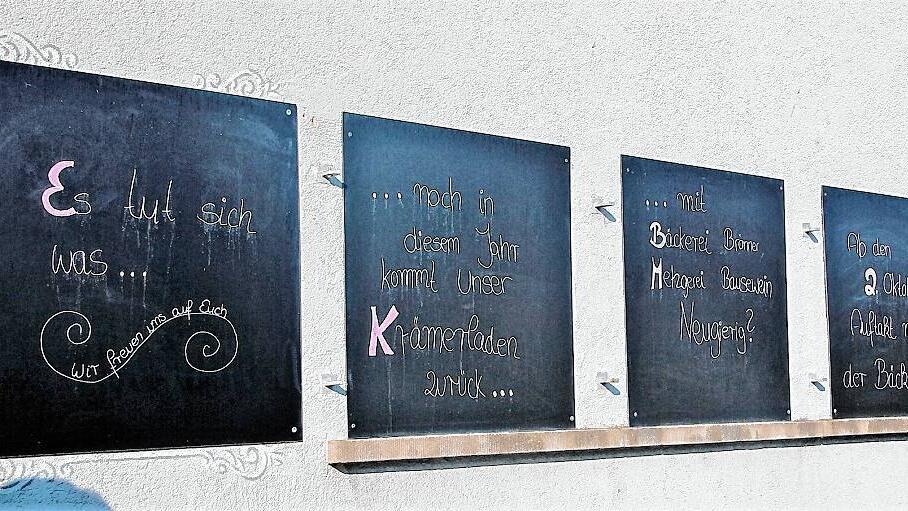 Es tut sich
was...
Wir freuen uns auf Euch
... noch in
diesem Jahr
kommt unser
Krämerladen
zurück...
... mit
Bäckerei Brömer
Metzgerei Bausewein
Neugierig?
Ab den
2. Okto
Auftakt
der Bäck